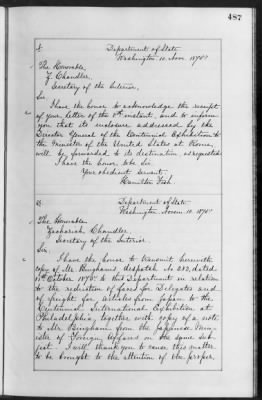 487
Department of State
Washington 10. Nov. 1875
The Honorable,
Z. Chandler,
Secretary of the Interior,
Sir
I have the honor to acknowledge the receipt
of your letter of the instant, and to inform
you that its enclosure addressed by the
Director General of the Centennial Exhibition to
the Minister of the United States at Rome,
will be forwarded to its destination as requested.
I have the honor to be Sir
Your obedient servant.
Hamilton Fish.
Department of State
Washington 10. 1875
The Honorable
Zachariah Chandler,
Secretary of the Interior.
Sir,
I have the honor to transmit herewith
copy of Mr. Bingham's despatch No. dated
October 1875 to this Department in relation
to the reduction of fares for Delegates and
of freight for articles from Japan to the
Centennial International Exhibition at
Philadelphia, together with copy of a note
to Mr. Bingham from the Japanese Min-
ister of Foreign Affairs on the same sub-
ject. I will thank you to cause this matter
to be brought to the attention of the proper